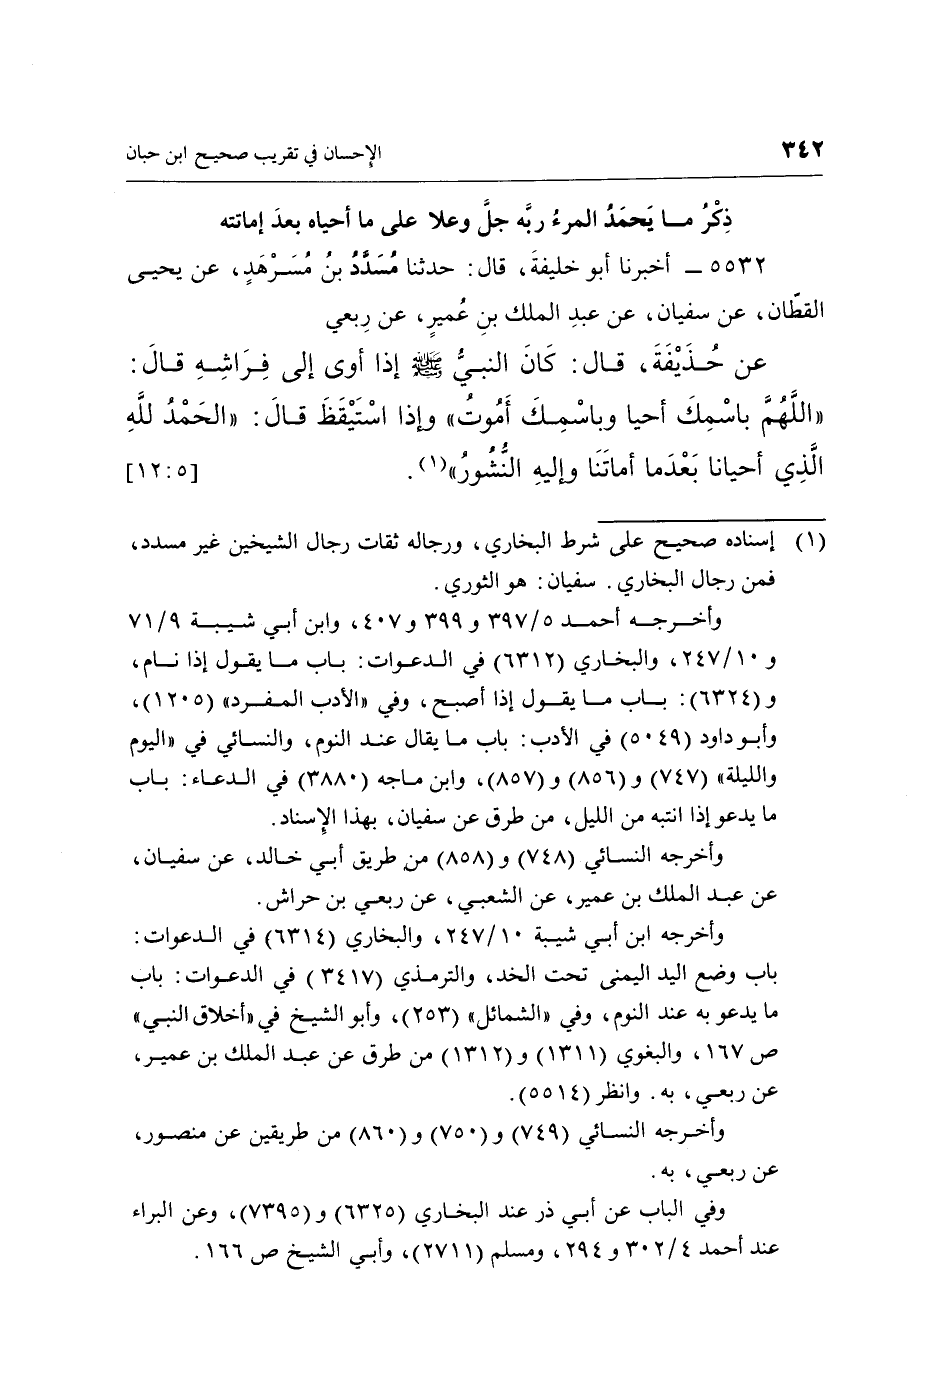 ٣٤٢ الإحسان في تقريب صحيح ابن حبان
ذِكْرُ مـا يَحمَدُ المرءُ ربَّه جلَّ وعلا على ما أحياه بعدَ إماتته
٥٥٣٢ ـ أخبرنا أبو خليفةَ، قال: حدثنا مُسَدَّدُ بنُ مُسَرْهَدٍ، عن يحيى
القطَّان، عن سفيان، عن عبدِ الملك بنِ عُميرٍ، عن رِبعي
عن حُـذَيْفَةَ، قـال: كَانَ النبيُّ ﷺ إذا أوى إلى فِـرَاشِـهِ قـالَ:
«اللَّهُمَّ باسْمِكَ أحيا وباسْمِـكَ أَمُوتُ» وإذا اسْتَيْقَظَ قـالَ: «الحَمْدُ للَّهِ
الَّذِي أحيانا بَعْدَما أماتَنَا وإليهِ النُّشُورُ»(١). [١٢:٥]
(١) إسناده صحيح على شرط البخاري، ورجاله ثقات رجال الشيخين غير مسدد،
فمن رجال البخاري. سفيان: هو الثوري.
وأخـرجـه أحمـد ٣٩٧/٥ و ٣٩٩ و٤٠٧، وابن أبي شـيبـة ٧١/٩
و ٢٤٧/١٠، والبخاري (٦٣١٢) في الـدعوات: بـاب مـا يقول إذا نـام،
و (٦٣٢٤): بـاب مـا يقـول إذا أصبح، وفي «الأدب المفـرد» (١٢٠٥)،
وأبـو داود (٥٠٤٩) في الأدب: باب ما يقال عنـد النوم، والنسائي في «اليوم
والليلة» (٧٤٧) و (٨٥٦) و (٨٥٧)، وابن مـاجه (٣٨٨٠) في الـدعـاء: بـاب
ما يدعو إذا انتبه من الليل، من طرق عن سفيان، بهذا الإسناد.
وأخرجه النسـائي (٧٤٨) و (٨٥٨) من طريق أبـي خـالد، عن سفيـان،
عن عبـد الملك بن عمير، عن الشعبي، عن ربعي بن حراش.
وأخرجه ابن أبـي شيبة ٢٤٧/١٠، والبخاري (٦٣١٤) في الـدعوات:
باب وضع اليد اليمنى تحت الخد، والترمذي (٣٤١٧) في الدعـوات: باب
ما يدعو به عند النوم، وفي «الشمائل» (٢٥٣)، وأبو الشيخ في «أخلاق النبي»
ص ١٦٧، والبغوي (١٣١١) و (١٣١٢) من طرق عن عبـد الملك بن عميـر،
عن ربعـي، به. وانظر (٥٥١٤).
وأخـرجه النسـائي (٧٤٩) و (٧٥٠) و (٨٦٠) من طريقين عن منصـور،
عن ربعـي، به.
وفي الباب عن أبـي ذر عند البخـاري (٦٣٢٥) و (٧٣٩٥)، وعن البراء
عند أحمد ٣٠٢/٤ و ٢٩٤، ومسلم (٢٧١١)، وأبي الشيخ ص ١٦٦.